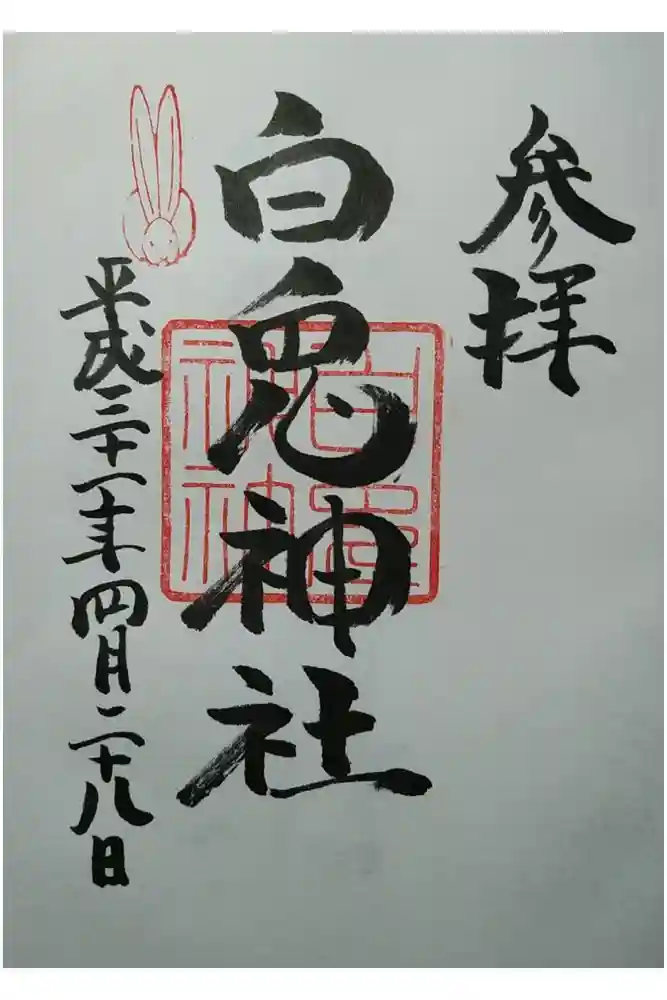 参拝
白兎神社
平成三十一年四月二十八日